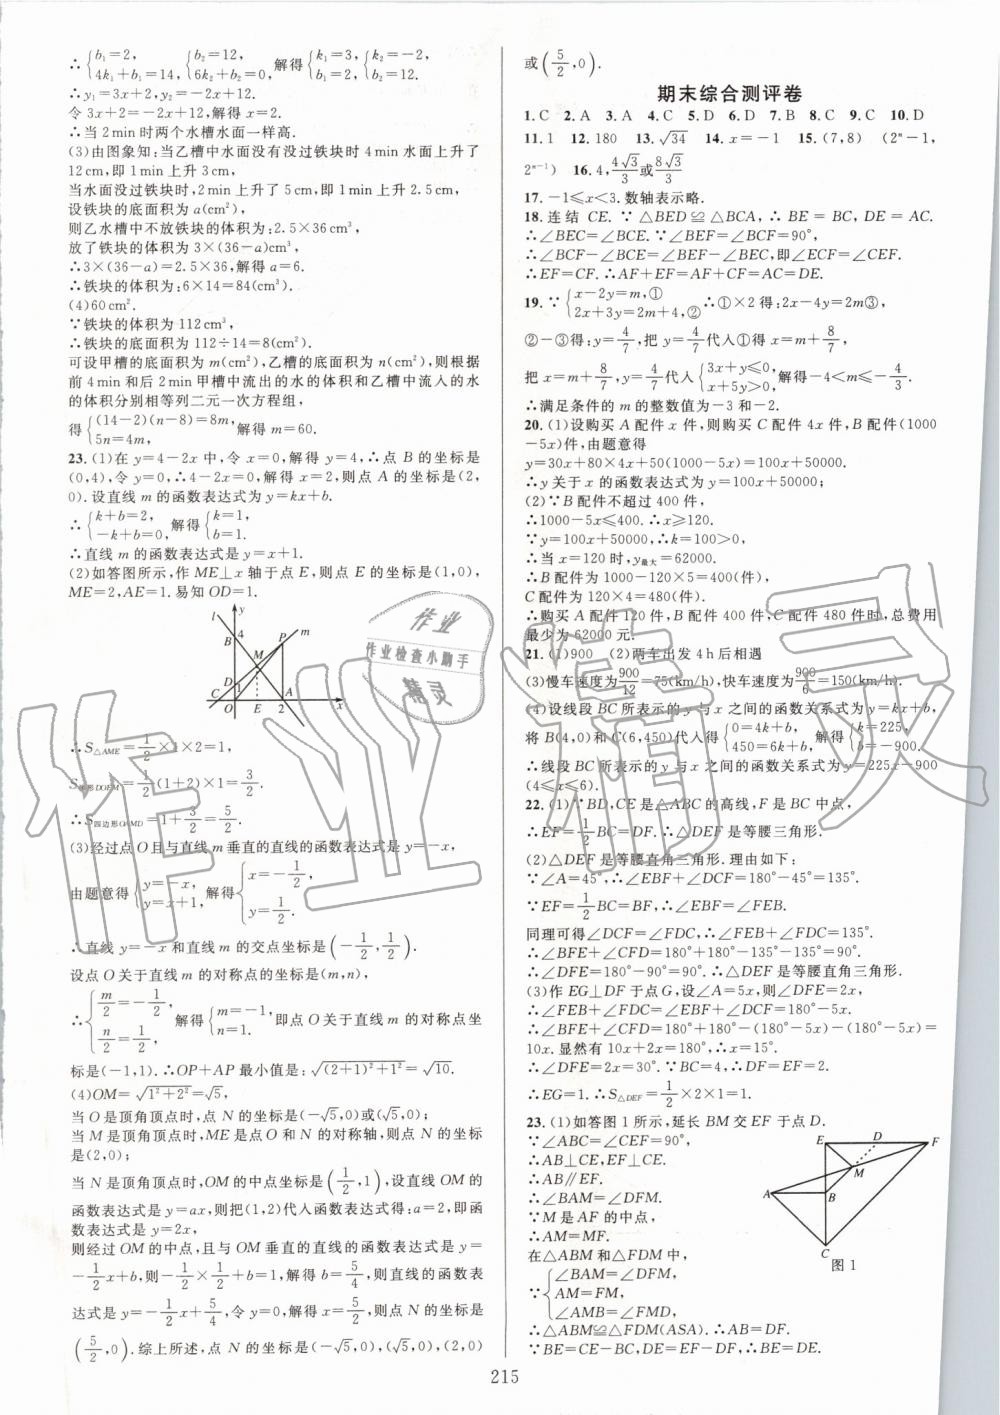 ∴{b₁=2, 4k₁+b₁=14, {b₂=12, 6k₂+b₂=0, 解得{k₁=3, b₁=2, {k₂=-2, b₂=12.
∴y₁=3x+2, y₂=-2x+12.
令 3x+2=-2x+12, 解得 x=2.
∴当 2 min 时两个水槽水面一样高.
(3)由图象知:当乙槽中水面没有没过铁块时 4 min 水面上升了
12 cm, 即 1 min 上升 3 cm,
当水面没过铁块时, 2 min 上升了 5 cm, 即 1 min 上升 2.5 cm,
设铁块的底面积为 a(cm²),
则乙水槽中不放铁块的体积为: 2.5×36 cm³,
放了铁块的体积为 3×(36-a)cm³,
∴3×(36-a)=2.5×36, 解得 a=6.
∴铁块的体积为: 6×14=84(cm³).
(4)60 cm².
∵铁块的体积为 112 cm³,
∴铁块的底面积为 112÷14=8(cm²).
可设甲槽的底面积为 m(cm²), 乙槽的底面积为 n(cm²), 则根据
前 4 min 和后 2 min 甲槽中流出的水的体积和乙槽中流入的水
的体积分别相等列二元一次方程组,
得{(14-2)(n-8)=8m, 5n=4m, 解得 m=60.
23. (1)在 y=4-2x 中, 令 x=0, 解得 y=4. ∴点 B 的坐标是
(0,4), 令 y=0, ∴4-2x=0, 解得 x=2, 则点 A 的坐标是(2,
0). 设直线 m 的函数表达式为 y=kx+b.
∴{k+b=2, -k+b=0, 解得{k=1, b=1.
∴直线 m 的函数表达式是 y=x+1.
(2)如答图所示, 作 ME⊥x 轴于点 E, 则点 E 的坐标是(1,0),
ME=2, AE=1. 易知 OD=1.
y
l
B 4
P m
M
D
1
C O E 2 A x
∴S△AME=1/2×1×2=1,
S梯形DOEM=1/2(1+2)×1=3/2.
∴S四边形OAMD=1+3/2=5/2.
(3)经过点 O 且与直线 m 垂直的直线的函数表达式是 y=-x,
由题意得{y=-x, y=x+1, 解得{x=-1/2, y=1/2.
∴直线 y=-x 和直线 m 的交点坐标是(-1/2, 1/2).
设点 O 关于直线 m 的对称点的坐标是(m,n),
∴{m/2=-1/2, n/2=1/2, 解得{m=-1, n=1. 即点 O 关于直线 m 的对称点坐
标是(-1,1). ∴OP+AP 最小值是: √((2+1)²+1²)=√10.
(4)OM=√(1²+2²)=√5,
当 O 是顶角顶点时, 点 N 的坐标是(-√5,0)或(√5,0);
当 M 是顶角顶点时, ME 是点 O 和 N 的对称轴, 则点 N 的坐标
是(2,0);
当 N 是顶角顶点时, OM 的中点坐标是(1/2,1), 设直线 OM 的
函数表达式是 y=ax, 则把(1,2)代入函数表达式得: a=2, 即函
数表达式是 y=2x,
则经过 OM 的中点, 且与 OM 垂直的直线的函数表达式是 y=
-1/2x+b, 则-1/2×1/2+b=1, 解得 b=5/4, 则直线的函数表
达式是 y=-1/2x+5/4, 令 y=0, 解得 x=5/2, 则点 N 的坐标是
(5/2,0). 综上所述, 点 N 的坐标是(-√5,0), (√5,0), (2,0)
或(5/2,0).
期末综合测评卷
1. C 2. A 3. A 4. C 5. D 6. D 7. B 8. C 9. C 10. D
11. 1 12. 180 13. √34 14. x=-1 15. (7,8) (2ⁿ-1,
2ⁿ⁻¹) 16. 4, 4√3/3 或 8√3/3
17. -1≤x<3. 数轴表示略.
18. 连结 CE. ∵△BED≌△BCA, ∴BE=BC, DE=AC.
∴∠BEC=∠BCE. ∵∠BEF=∠BCF=90°,
∴∠BCF-∠BCE=∠BEF-∠BEC, 即∠ECF=∠CEF.
∴EF=CF. ∴AF+EF=AF+CF=AC=DE.
19. ∵{x-2y=m,① 2x+3y=2m+4,② ∴①×2 得: 2x-4y=2m③,
②-③得: y=4/7, 把 y=4/7代入①得: x=m+8/7,
把 x=m+8/7, y=4/7代入{3x+y≤0, x+5y>0, 解得-4<m≤-4/3.
∴满足条件的 m 的整数值为-3 和-2.
20. (1)设购买 A 配件 x 件, 则购买 C 配件 4x 件, B 配件(1000
-5x)件, 由题意得
y=30x+80×4x+50(1000-5x)=100x+50000;
∴y 关于 x 的函数表达式为 y=100x+50000;
(2)∵B 配件不超过 400 件,
∴1000-5x≤400. ∴x≥120.
∵y=100x+50000, ∴k=100>0,
∴当 x=120 时, y最大=62000.
∴B 配件为 1000-120×5=400(件),
C 配件为 120×4=480(件).
∴购买 A 配件 120 件, B 配件 400 件, C 配件 480 件时, 总费用
最少为 62000 元.
21. (1)900 (2)两车出发 4 h 后相遇
(3)慢车速度为900/12=75(km/h), 快车速度为900/6=150(km/h).
(4)设线段 BC 所表示的 y 与 x 之间的函数关系式为 y=kx+b,
将 B(4,0)和 C(6,450)代入得{0=4k+b, 450=6k+b, 解得{k=225, b=-900.
∴线段 BC 所表示的 y 与 x 之间的函数关系式为 y=225x-900
(4≤x≤6).
22. (1)∵BD, CE 是△ABC 的高线, F 是 BC 中点,
∴EF=1/2BC=DF. ∴△DEF 是等腰三角形.
(2)△DEF 是等腰直角三角形. 理由如下:
∵∠A=45°, ∴∠EBF+∠DCF=180°-45°=135°.
∵EF=1/2BC=BF, ∴∠EBF=∠FEB.
同理可得∠DCF=∠FDC, ∴∠FEB+∠FDC=135°.
∴∠BFE+∠CFD=180°+180°-135°-135°=90°.
∴∠DFE=180°-90°=90°. ∴△DEF 是等腰直角三角形.
(3)作 EG⊥DF 于点 G, 设∠A=5x, 则∠DFE=2x,
∴∠FEB+∠FDC=∠EBF+∠DCF=180°-5x.
∴∠BFE+∠CFD=180°+180°-(180°-5x)-(180°-5x)=
10x. 显然有 10x+2x=180°, ∴x=15°.
∴∠DFE=2x=30°. ∵BC=4, ∴DF=EF=2.
∴EG=1. ∴S△DEF=1/2×2×1=1.
23. (1)如答图 1 所示, 延长 BM 交 EF 于点 D.
∵∠ABC=∠CEF=90°,
∴AB⊥CE, EF⊥CE.
∴AB∥EF.
∴∠BAM=∠DFM.
∵M 是 AF 的中点,
∴AM=MF.
在△ABM 和△FDM 中,
∵{∠BAM=∠DFM, AM=FM, ∠AMB=∠FMD,
∴△ABM≌△FDM(ASA). ∴AB=DF.
∵BE=CE-BC, DE=EF-DF, ∴BE=DE.
E D F
M
A B
C
图 1
215
作业
作业检查小助手
精灵
作业精灵